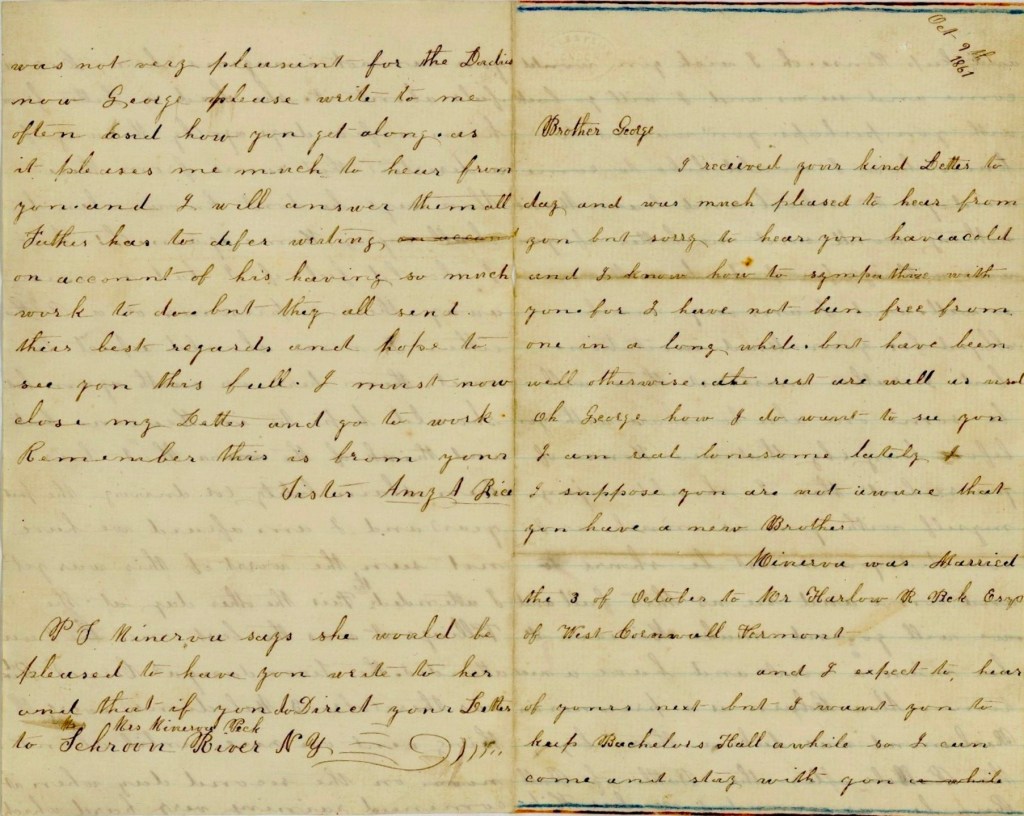 Oct 9th
1861
Brother George
I recieved your kind Letter to
day and was much pleased to hear from
you but sorry to hear you have a cold
and I know how to sympathise with
you. for I have not been free from
one in a long while. but have been
well otherwise. the rest are well as usul
Oh George how I do want to see you
I am real lonesome lately
I suppose you are not aware that
you have a new Brother
Minerva was Married
the 3 of October to Mr Harlow R Peck Esqr
of West Cornwall Vermont
and I expect to, hear
of yours next but I want you to
keep Bachelors Hall awhile so I can
come and stay with you a while
was not very pleasent for the Ladies
now George please write to me
often and how you get along. as
it pleases me much to hear from
you. and I will answer them all
Father has to defer writing on account
on account of his having so much
work to do. but they all send.
their best regards and hope to
see you this fall. I must now
close my Letter and go to work.
Remember this is from your
Sister Amy A Rice
P S Minerva says she would be
pleased to have you write to her
and that if you do Direct your Letter
Mrs Minerva Peck
to Schroon River N Y